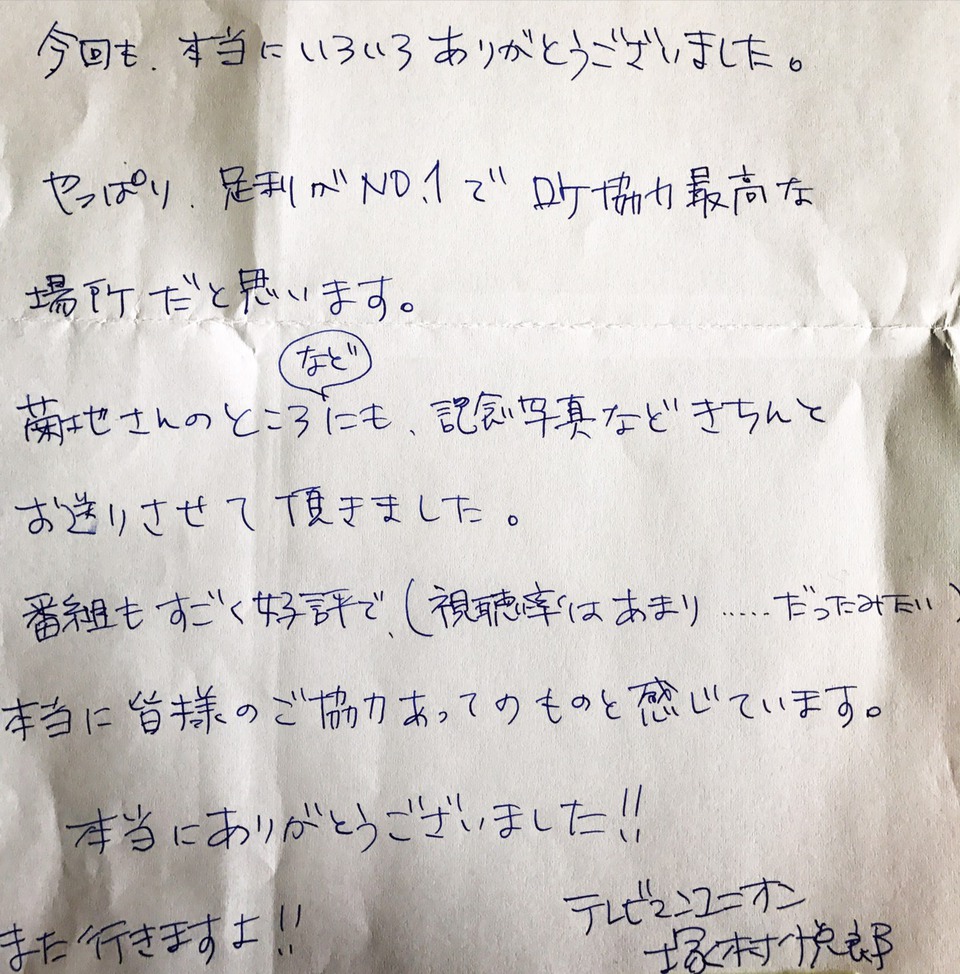 今回も、本当にいろいろありがとうございました。
やっぱり、足利がNO.1でロケ協力最高な
場所だと思います。
など
菊地さんのところにも、記念写真などきちんと
お送りさせて頂きました。
番組もすごく好評で、(視聴率はあまり……だったみたい)
本当に皆様のご協力あってのものと感じています。
本当にありがとうございました!!
また行きますよ!!
テレビマンユニオン
塚村悦郎